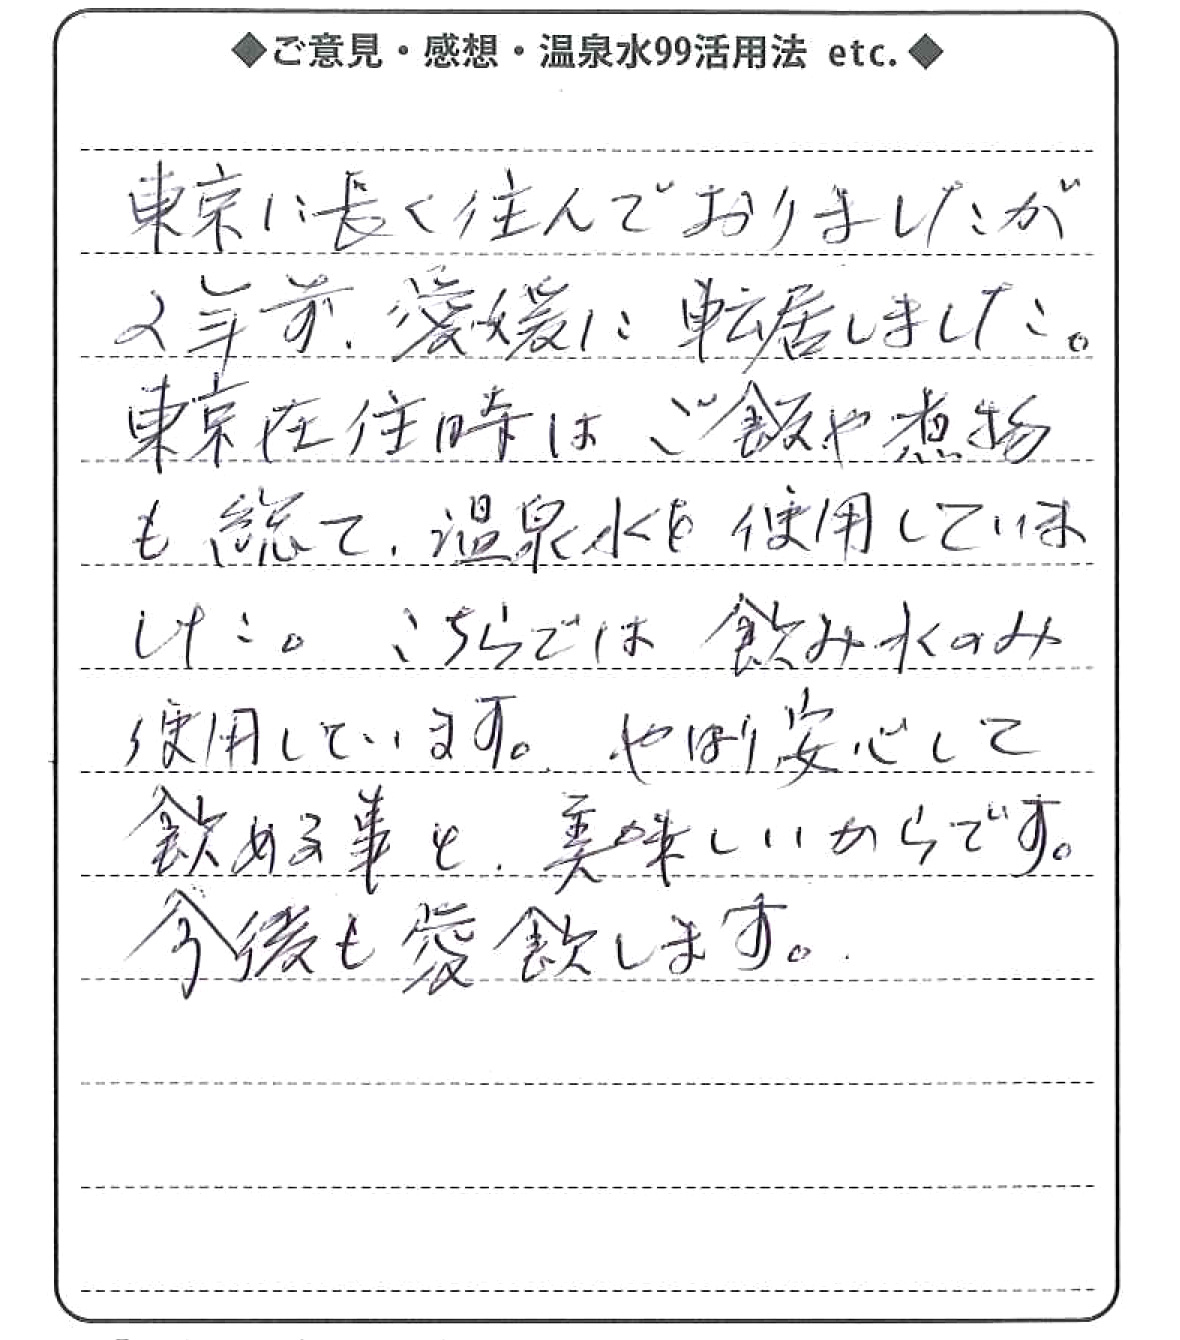 ◆ご意見・感想・温泉水99活用法 etc.◆
東京に長く住んでおりましたが
2年前、愛媛に転居しました。
東京在住時はご飯や煮物
も総て、温泉水を使用していま
した。こちらでは飲み水のみ
使用しています。やはり安心して
飲める事と、美味しいからです。
今後も愛飲します。